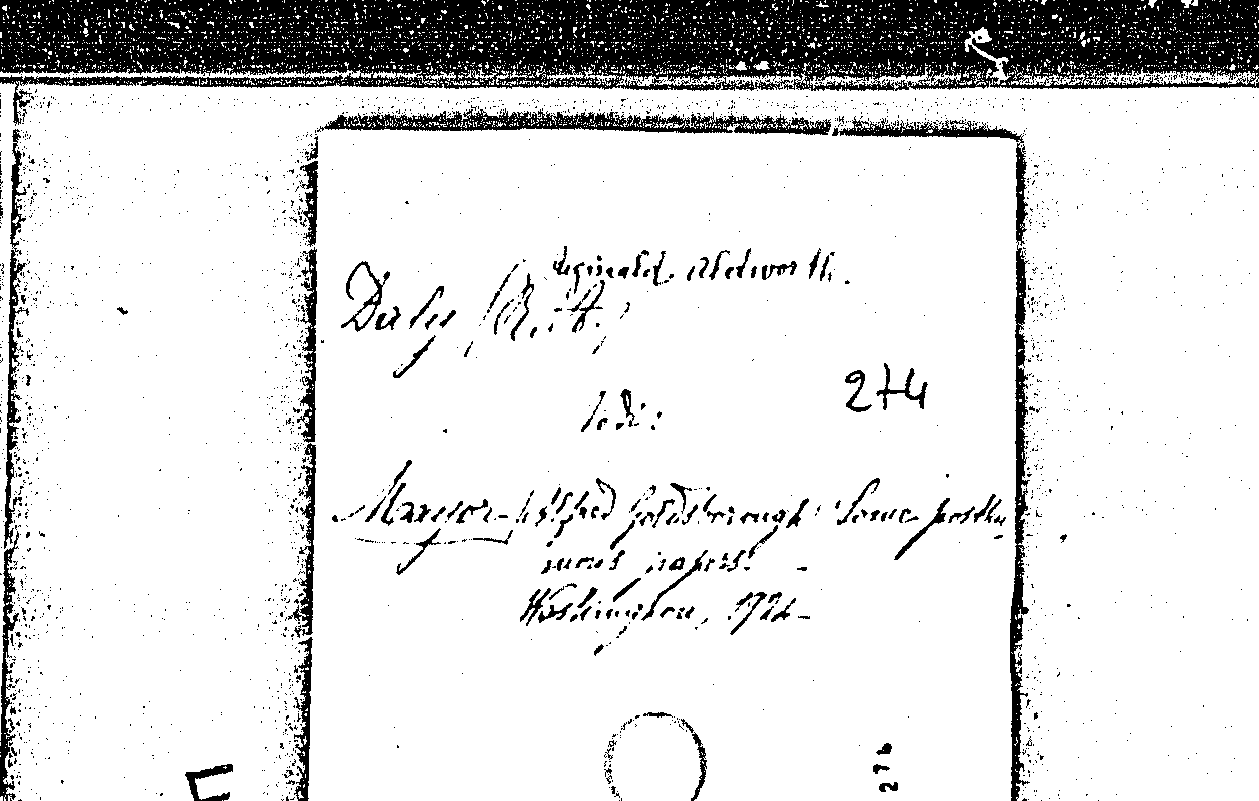 Reginald Aldworth.
Daly (R. A.)
Vedi:
274
Mayor Alfred Goldsborough: Some posthu-
mous papers. -
Washington, 1924-